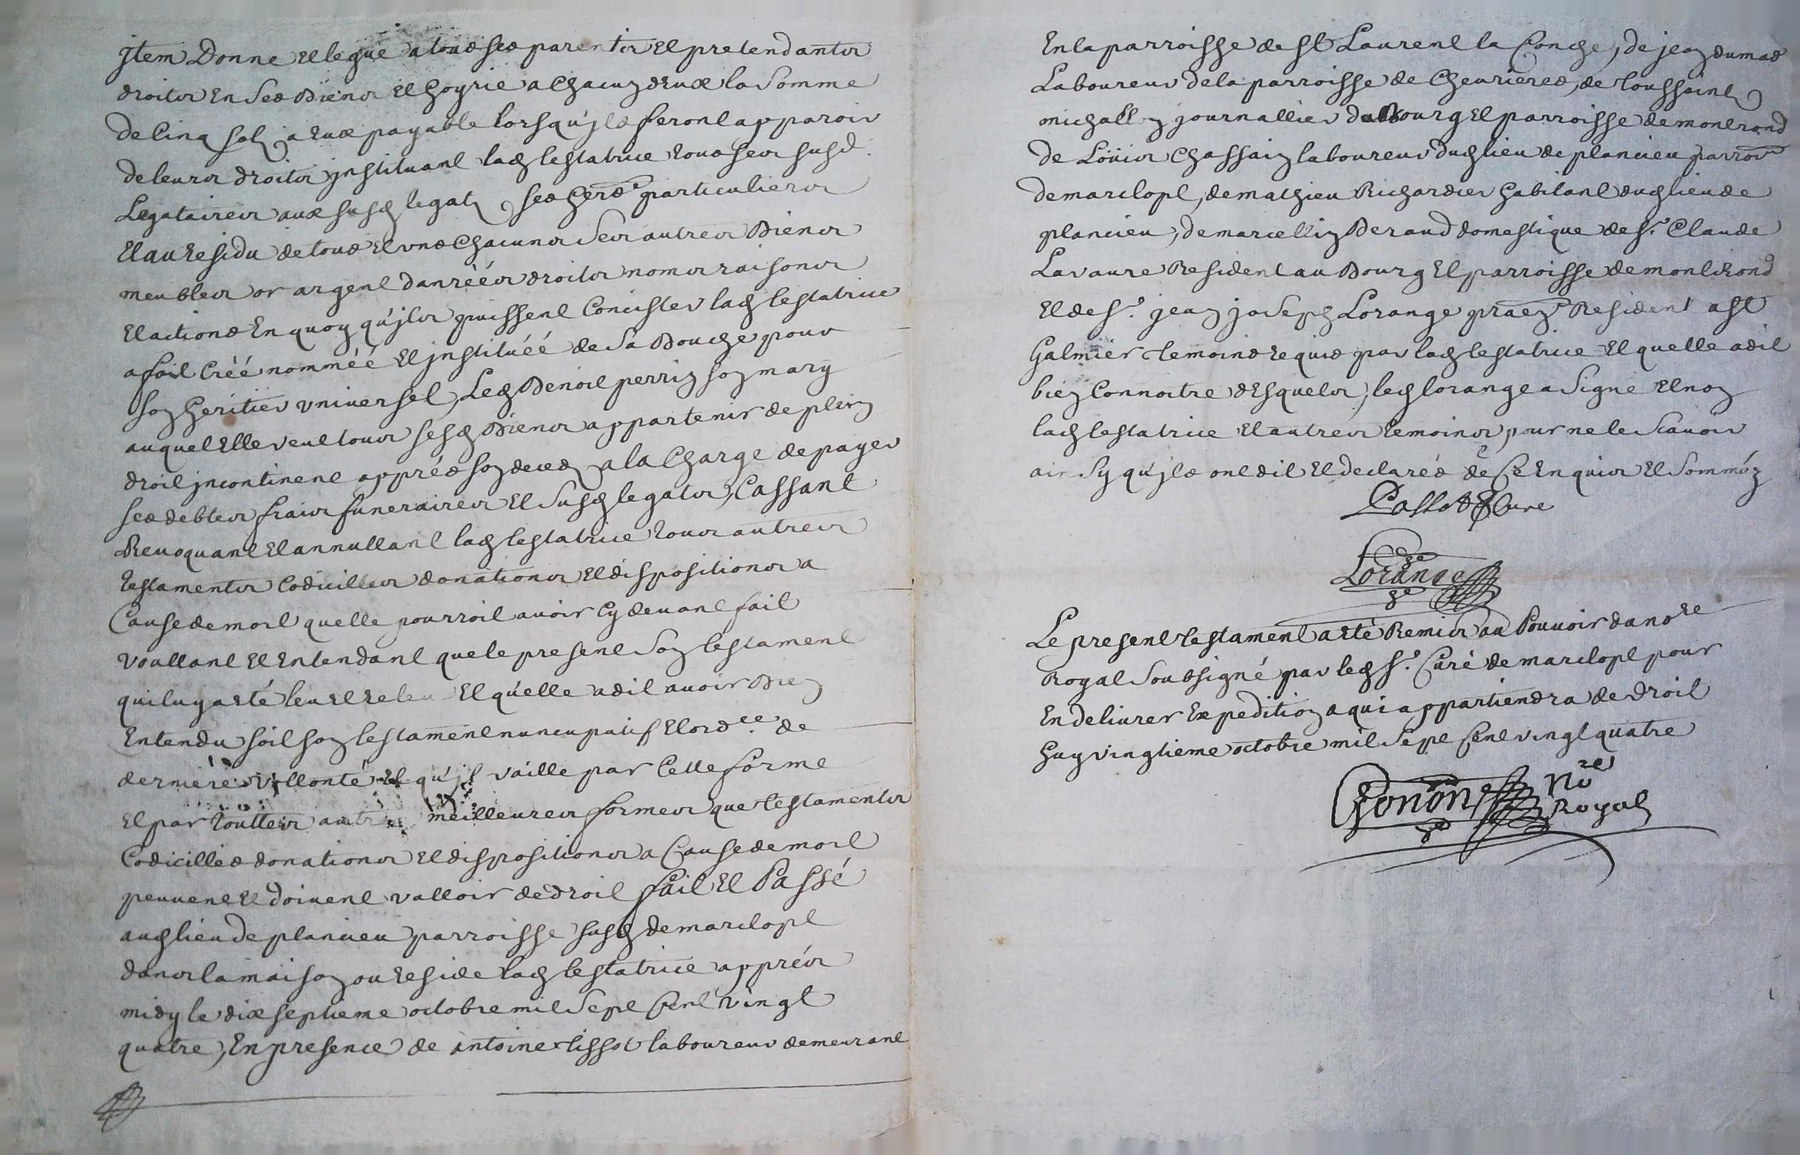 jtem Donne et legue a tous ses parentz et pretendantz
droitz en ses biens et hoyrie a chacun d'eux la somme
de cinq solz a eux payable lorsqu'jls feront apparoir
de leurs droitz jnstituant lad testatrice tous ses susd.
Legataires aux susd legatz ses herers particuliers
Et au residu de tous et uns chacuns ses autres Biens
meubles or argent danréés droitz noms raisons
et actions En quoy qu'jlz puissent Concister lad testatrice
a fait Créé nomméé et jnstituéé de sa Bouche pour
son heritier universel, Led Benoit perrin son mary
auquel Elle veut tous sesd Biens appartenir de plein
droit jncontinent apprés son deced a la Charge de payer
ses debtes fraix funeraires et susd legatz, Cassant
Revoquant et annullant lad testatrice tous autres
testamentz Codicilles donations et dispositions a
Cause de mort quelle pourroit avoir Cy devant fait
voullant et Entendant que le present son testament
qui luy a eté leu et releu et qu'elle a dit avoir Bien
Entendu soit son testament nuncupatif et ordce. de
derniére vollonté et qu'jl vaille par Cette forme
et par touttes autres meilleures formes que testamentz
Codicilles donations et dispositions a Cause de mort
peuvent et doivent valloir de droit fait et Passé
aud lieu de plancieu parroisse susd de marclopt
dans la maison ou reside lad testatrice apprés
midy le dix septieme octobre mil sept cent vingt
quatre, En presence de antoine tissot laboureur demeurant
En la parroisse de st Laurent la Conche, de jean dumas
Laboureur de la parroisse de Chevrieres, de toussaint
michallon journallier du Bourg et parroisse de montrond
de Loüis Chassain laboureur dud lieu de plancieu parrosse
de marclopt, de mathieu Richardier habitant dud lieu de
plancieu, de marcellin Beraud domestique de sr. Claude
Lavaure Resident au Bourg et parroisse de montrond
et de sr. jean joseph Lorange praen Resident a st
Galmier temoins requis par lad testatrice et quelle a dit
bien Connoitre desquels, led lorange a signé et non
lad testatrice et autres temoins, pour ne le scavoir
ainsy qu'jls ont dit et declarés de Ce Enquis et sommés
Curé
Lorange
Le present testament a eté Remis au Pouvoir du nore
Royal soubsigné par led sr. Curé de marclopt pour
En delivrer Expedition a qui appartiendra de droit
huy vingtieme octobre mil sept cent vingt quatre
Gonon Nre
Royal